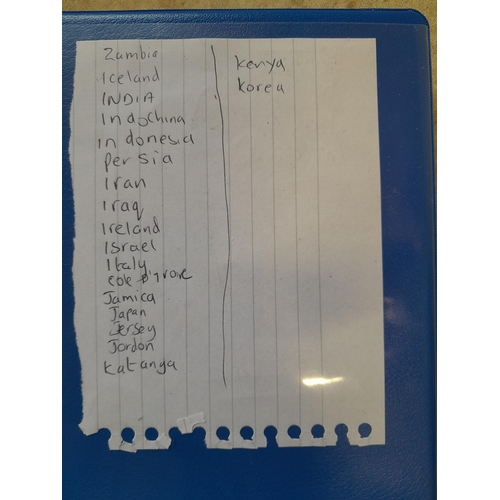 Zambia
Iceland
INDIA
Indochina
indonesia
persia
Iran
Iraq
Ireland
ISrael
Italy
cote D'Ivore
Jamica
Japan
Jersey
Jordon
Katanga
Kenya
Korea